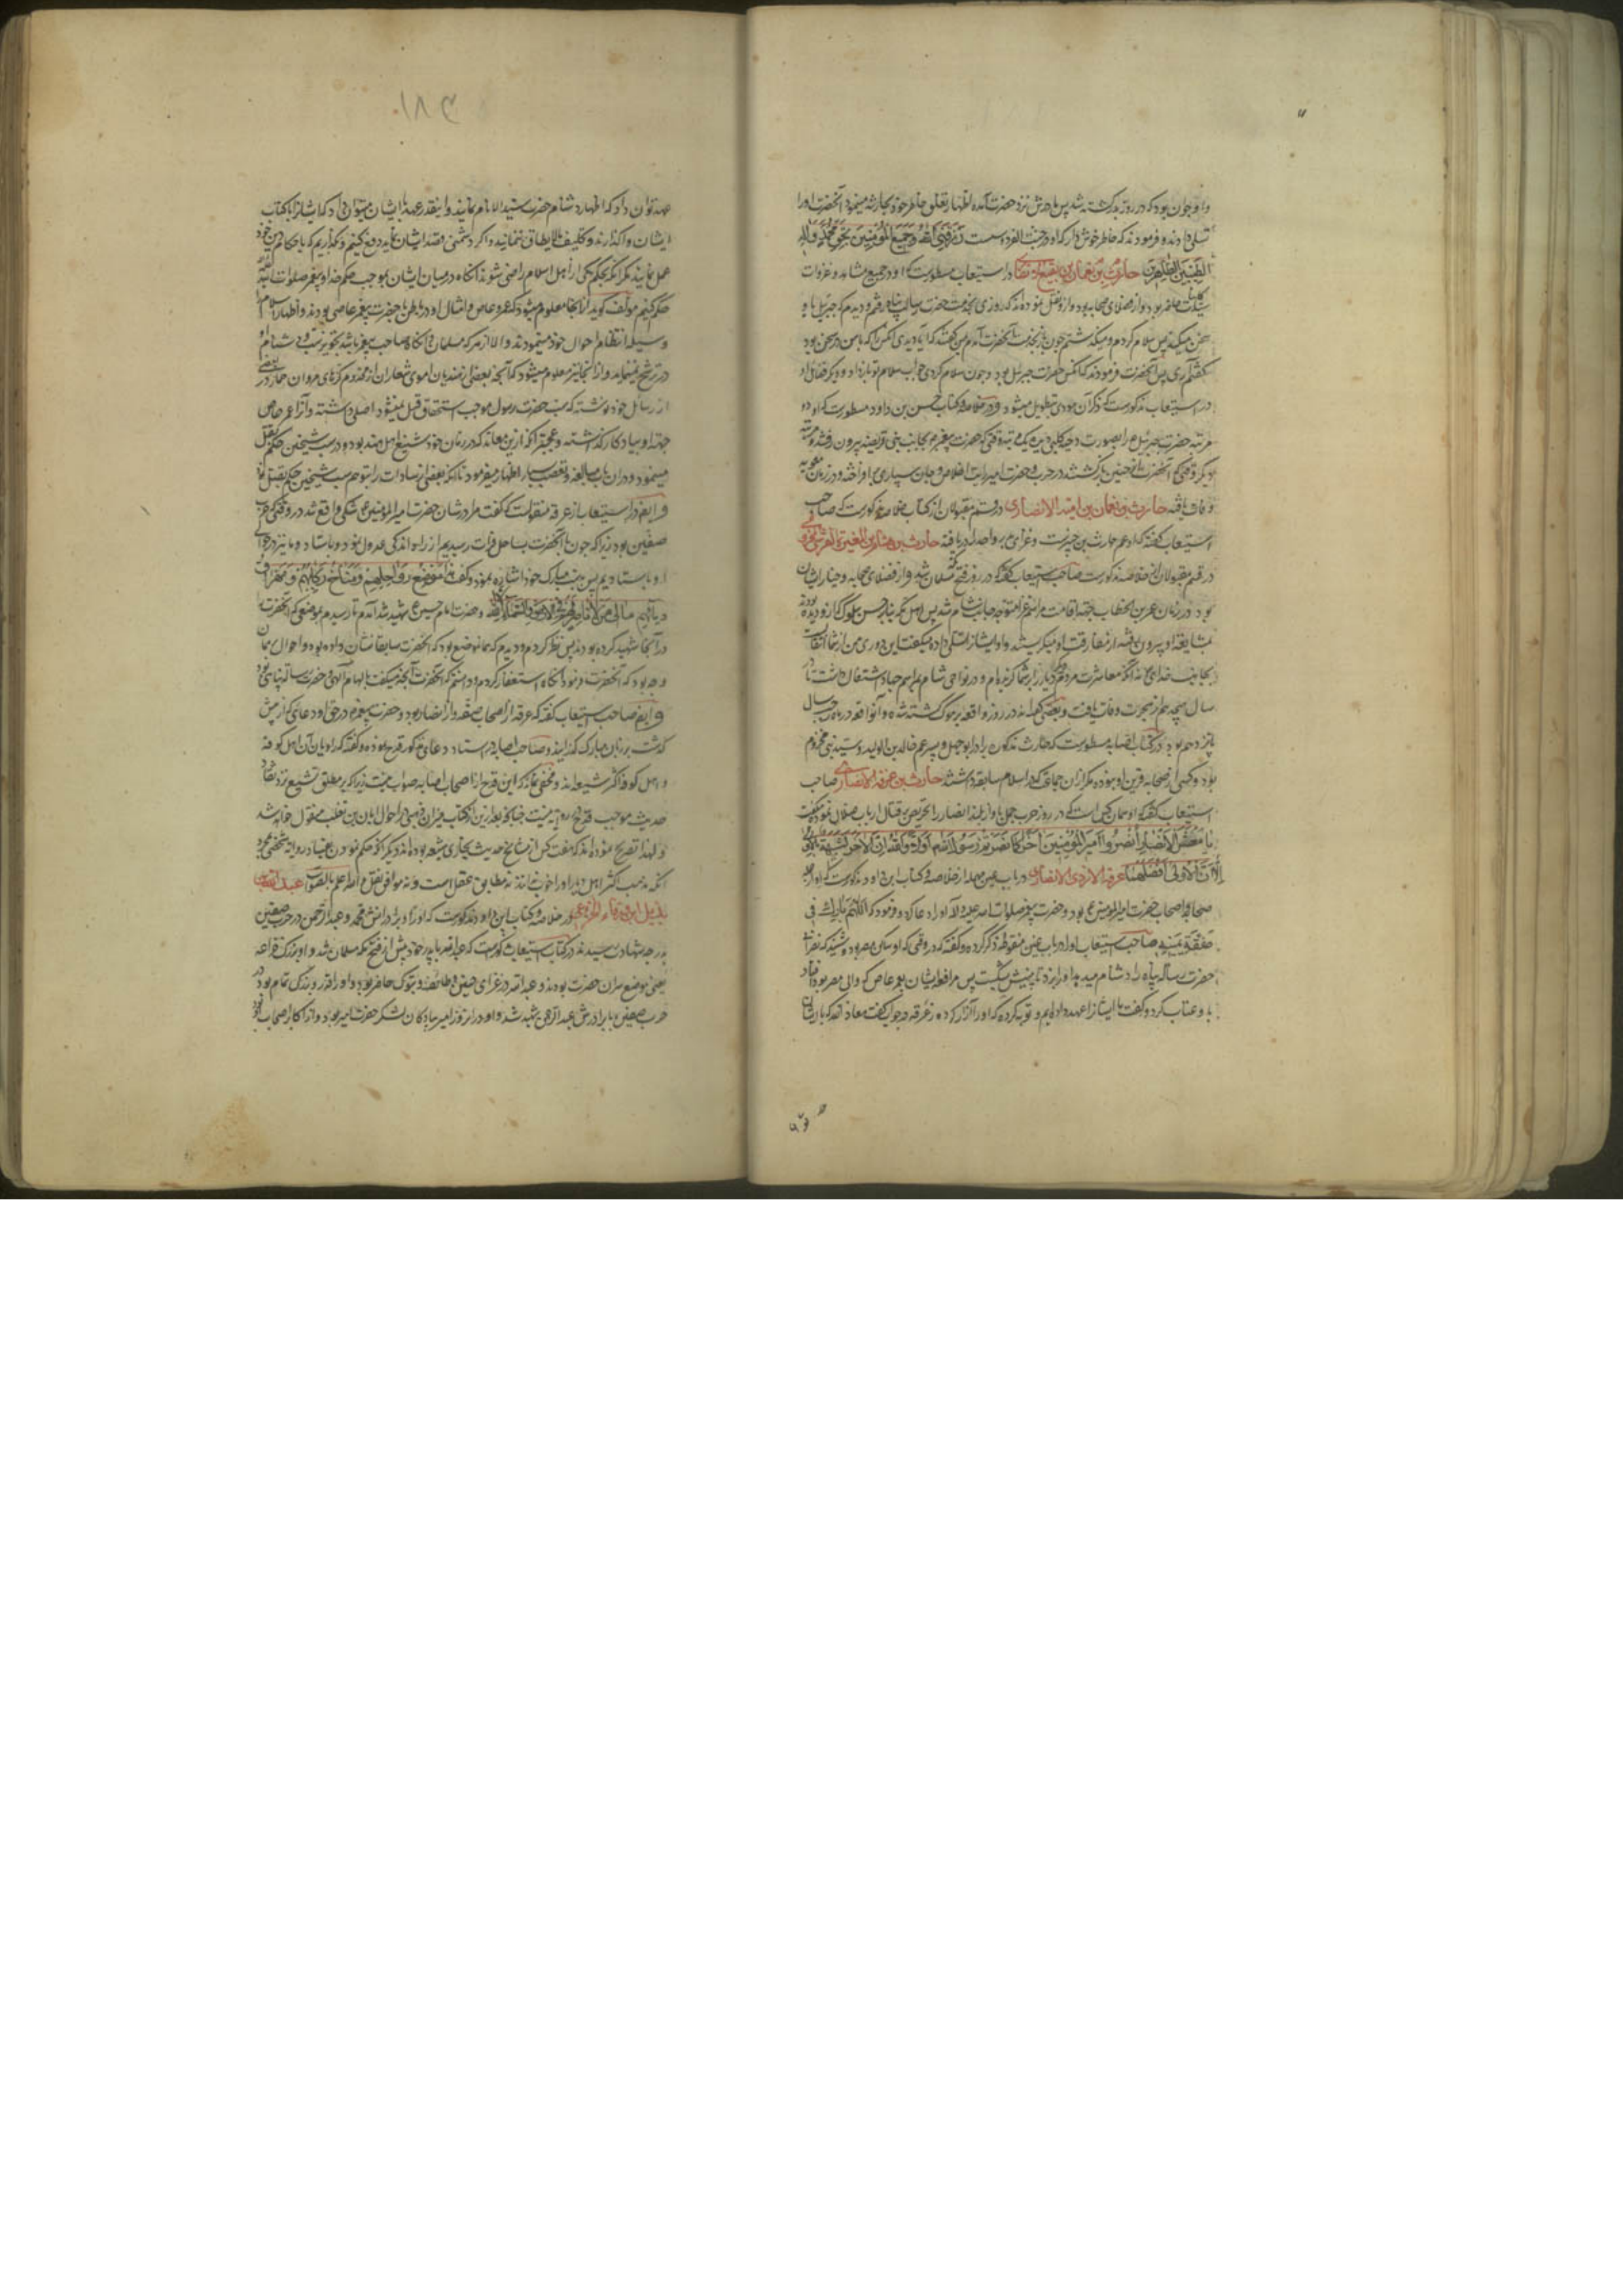 و او جوان بود که در روز بدر کشته شد پس مادرش نزد حضرت آمده اظهار تعلق خاطر خود بحارثه مینمود آنحضرت او را
تسلی دادند و فرمودند که خاطر خوش دار که او در جنت الفردوس است رزقنی الله و جمیع المؤمنین بحق محمد و آله
الطیبین الطاهرین حارث بن نعمان بن در استیعاب مسطور است که او در جمیع مشاهد و غزوات
حاضر بود و از فضلای صحابه بود و از او نقل نموده اند که روزی بخدمت حضرت رسالت پناه رفتم و دیدم که جبرئیل با او
سخن میکند پس سلام کردم و میگذشتم چون باز بخدمت آنحضرت آمدم بمن گفتند که آیا دیدی آنکس را که با من در سخن بود
گفتم آری پس آنحضرت فرمودند که آنکس حضرت جبرئیل بود و چون سلام کردی جواب سلام تو باز داد و دیگر فضایل او
در استیعاب مذکور است که ذکر آن مودی بتطویل میشود و در خلاصه و کتاب حسن بن داود مسطور است که او دو
مرتبه حضرت جبرئیل را بصورت دحیه کلبی دیده یک مرتبه وقتی که حضرت پیغمبر بجانب بنی قریضه بیرون رفتند و مرتبه
دیگر وقتی که آنحضرت از حنین باز گشتند در حرب حضرت امیر رایت اخلاص و جان سپاری بر افراخته و در زمان معویه
وفات یافته حارث بن نعمان بن امیه الانصاری در قسم مقبولان از کتاب خلاصه مذکور است که صاحب
استیعاب گفته که او عم حارث بن جبیر است و غزای بدر و احد را دریافته حارث بن هشام بن المغیرة القرشی المخزومی
در قسم مقبولان از خلاصه مذکور است صاحب استیعاب گفته که در روز فتح مکه مسلمان شد و از فضلای صحابه و خیار ایشان
بود در زمان عمر بن الخطاب جهته اقامت مراسم غزا متوجه جانب شام شد پس اهل مکه بنا بر حسن سلوک که از او دیده بودند
بمشایعة او بیرون رفته از مفارقت او میگریستند و او ایشانرا تسلی داده میگفت این دوری من از شما انتقالست
بجانب خدای و نه آنکه معاشرت مردم دیگر دیار را بر شما گزیده ام و در نواحی شام بمراسم جهاد اشتغال داشت تا در
سال هیجدهم از هجرت وفات یافت و بعضی گفته اند در روز واقعه یرموک کشته شده و آنواقعه در ماه رجب سال
پانزدهم بود در کتاب اصابه مسطور است که حارث مذکور برادر ابوجهل و پسر عم خالد بن الولید و سید بنی مخزوم
بود و کسی از صحابه قرین او نبوده مگر از آن جماعتی که در اسلام سابقه داشتند حارث بن غزیه الانصاری صاحب
استیعاب گفته که او همان کس است که در روز حرب جمل باواز بلند انصار را تحریض بر قتال ارباب ضلال نموده میگفت
یا معشر الانصار انصروا امیر المؤمنین آخرا کما نصرتم رسول الله اولا والله ان الاخرة لشبیهة بالاولی
الا ان الاولی افضلهما عرفه الازدی الانصاری در باب عین مهمله از خلاصه و کتاب ابن داود مذکور است که او از جمله
صحابه و اصحاب حضرت امیر المؤمنین ع بود و حضرت پیغمبر صلوات الله علیه و آله او را دعا کرده و فرمود که اللهم بارک فی
صفقة یمینه صاحب استیعاب او را در باب غین منقوطه ذکر کرده و گفته که در وقتی که او ساکن مصر بود شنید که نصرانی
حضرت رسالت پناه را دشنام میدهد او را بزد تا بینیش شکست پس مرافعه ایشان بعمرو عاص که والی مصر بود افتاد
با او عتاب کرد و گفت ما ایشانرا عهد داده ایم و تو چگونه او را آزار کرده غرقه در جواب گفت معاذ الله که با ایشان
عهد توان داد که اظهار دشنام حضرت سید الانام نمایند و اینقدر عهد با ایشان میتوان داد که ایشانرا با کتاب
ایشان واگذارند و تکلیف ما لا یطاق ننمایند و اگر دشمنی قصد ایشان نماید دفع کنیم و نگذاریم که باحکام دین خود
عمل نمایند مگر آنکه بحکم یکی از اهل اسلام راضی شوند آنگاه در میان ایشان بموجب حکم خدا و پیغمبر صلوات الله علیه
حکم کنیم مؤلف گوید از اینجا معلوم میشود که عمرو عاص و امثال او در باطن با حضرت پیغمبر عاصی بودند و اظهار اسلام را
وسیله انتظام احوال خود مینمودند و الا از هر که مسلمان و آنگاه صاحب پیغمبر باشد تجویز سب و دشنام او
در ترشح ننماید و از اینجا نیز معلوم میشود که آنچه بعضی از هندیان اموی شعاران از مخدوم گرفته اند مروان حمار در بعضی
از رسایل خود نوشته که سب حضرت رسول موجب استحقاق قتل نمیشود اصلی داشته و آنرا عمرو عاص
جهة او بیادگار گذاشته و عجبتر آنکه از این معاند که در زمان خود شیخ اهل هند بود و در سب شیخین حکم بقتل
مینمود و در آن باب مبالغه و تعصب بسیار اظهار میفرمود تا آنکه بعضی از سادات را بتوهم سب شیخین حکم بقتل نمود
و ایضا در استیعاب از عرفه منقولست که گفت مرا در شان حضرت امیر المؤمنین ع شکی واقع شد در وقتی که حرب
صفین بود زیرا که چون با آنحضرت بساحل فرات رسیدیم از راه اندکی عدول نمود و باستاد و ما نیز در حوالی
او باستادیم پس بدست مبارک خود اشاره نمود و گفت هذا موضع رواحلهم و مناخ رکابهم و مهراق
دمائهم و حضرت امام حسین ع شهید شد آمدم تا رسیدم بموضعی که آنحضرت
در آنجا شهید کرده بودند پس نظر کردم و دیدم که همانموضع بود که آنحضرت سابقا نشان داده بود و احوال بهمان
وجه بود که آنحضرت فرمود آنگاه استغفار کردم و دانستم که آنحضرت آنچه میگفت بالهام آلهی و حضرت رسالت پناهی بود
و ایضا صاحب استیعاب گفته که عرفه از اصحاب صفه و از انصار بود و حضرت پیغمبر در حق او دعای که از پیش
گذشت بر زبان مبارک گذرانید و صاحب اصابه در اسناد دعای مذکور قدح نموده و گفته که راویان آن اهل کوفه
و اهل کوفه اکثر شیعه اند و مخفی نماند که این قدح از اصحاب اصابه صواب نیست زیرا که بر مطلق تشیع نزد نقاد
حدیث موجب قدح روایت نیست چنانکه بعد ازین از کتاب میزان ذهبی در احوال ابان بن تغلب منقول خواهد شد
و لهذا تصریح نموده اند که هفت کس از مشایخ حدیث بخاری شیعه بوده اند و دیگر آنکه حکم نمودن بفساد روایت شخصی بمجرد
آنکه مذهب اکثر اهل دیار او را خوب ندانند نه مطابق عقل است و نه موافق نقل و الله اعلم بالصواب عبدالله بن
بدیل بن ورقاء الخزاعی در خلاصه و کتاب ابن داود مذکور است که او را و برادرانش محمد و عبدالرحمن در حرب صفین
بدرجه شهادت رسیدند و در کتاب استیعاب مذکور است که عبدالله با پدر خود پیش از فتح مکه مسلمان شد و او بزرگ خزاعه
یعنی موضع سران حضرت بودند و عبدالله در غزای حنین و طایف و تبوک حاضر بود و او را قدر و بزرگی تمام بود در
حرب صفین با برادرش عبدالرحمن شهید شد و او در آنروز امیر پیادگان لشکر حضرت امیر بود و از اکابر اصحاب او بود